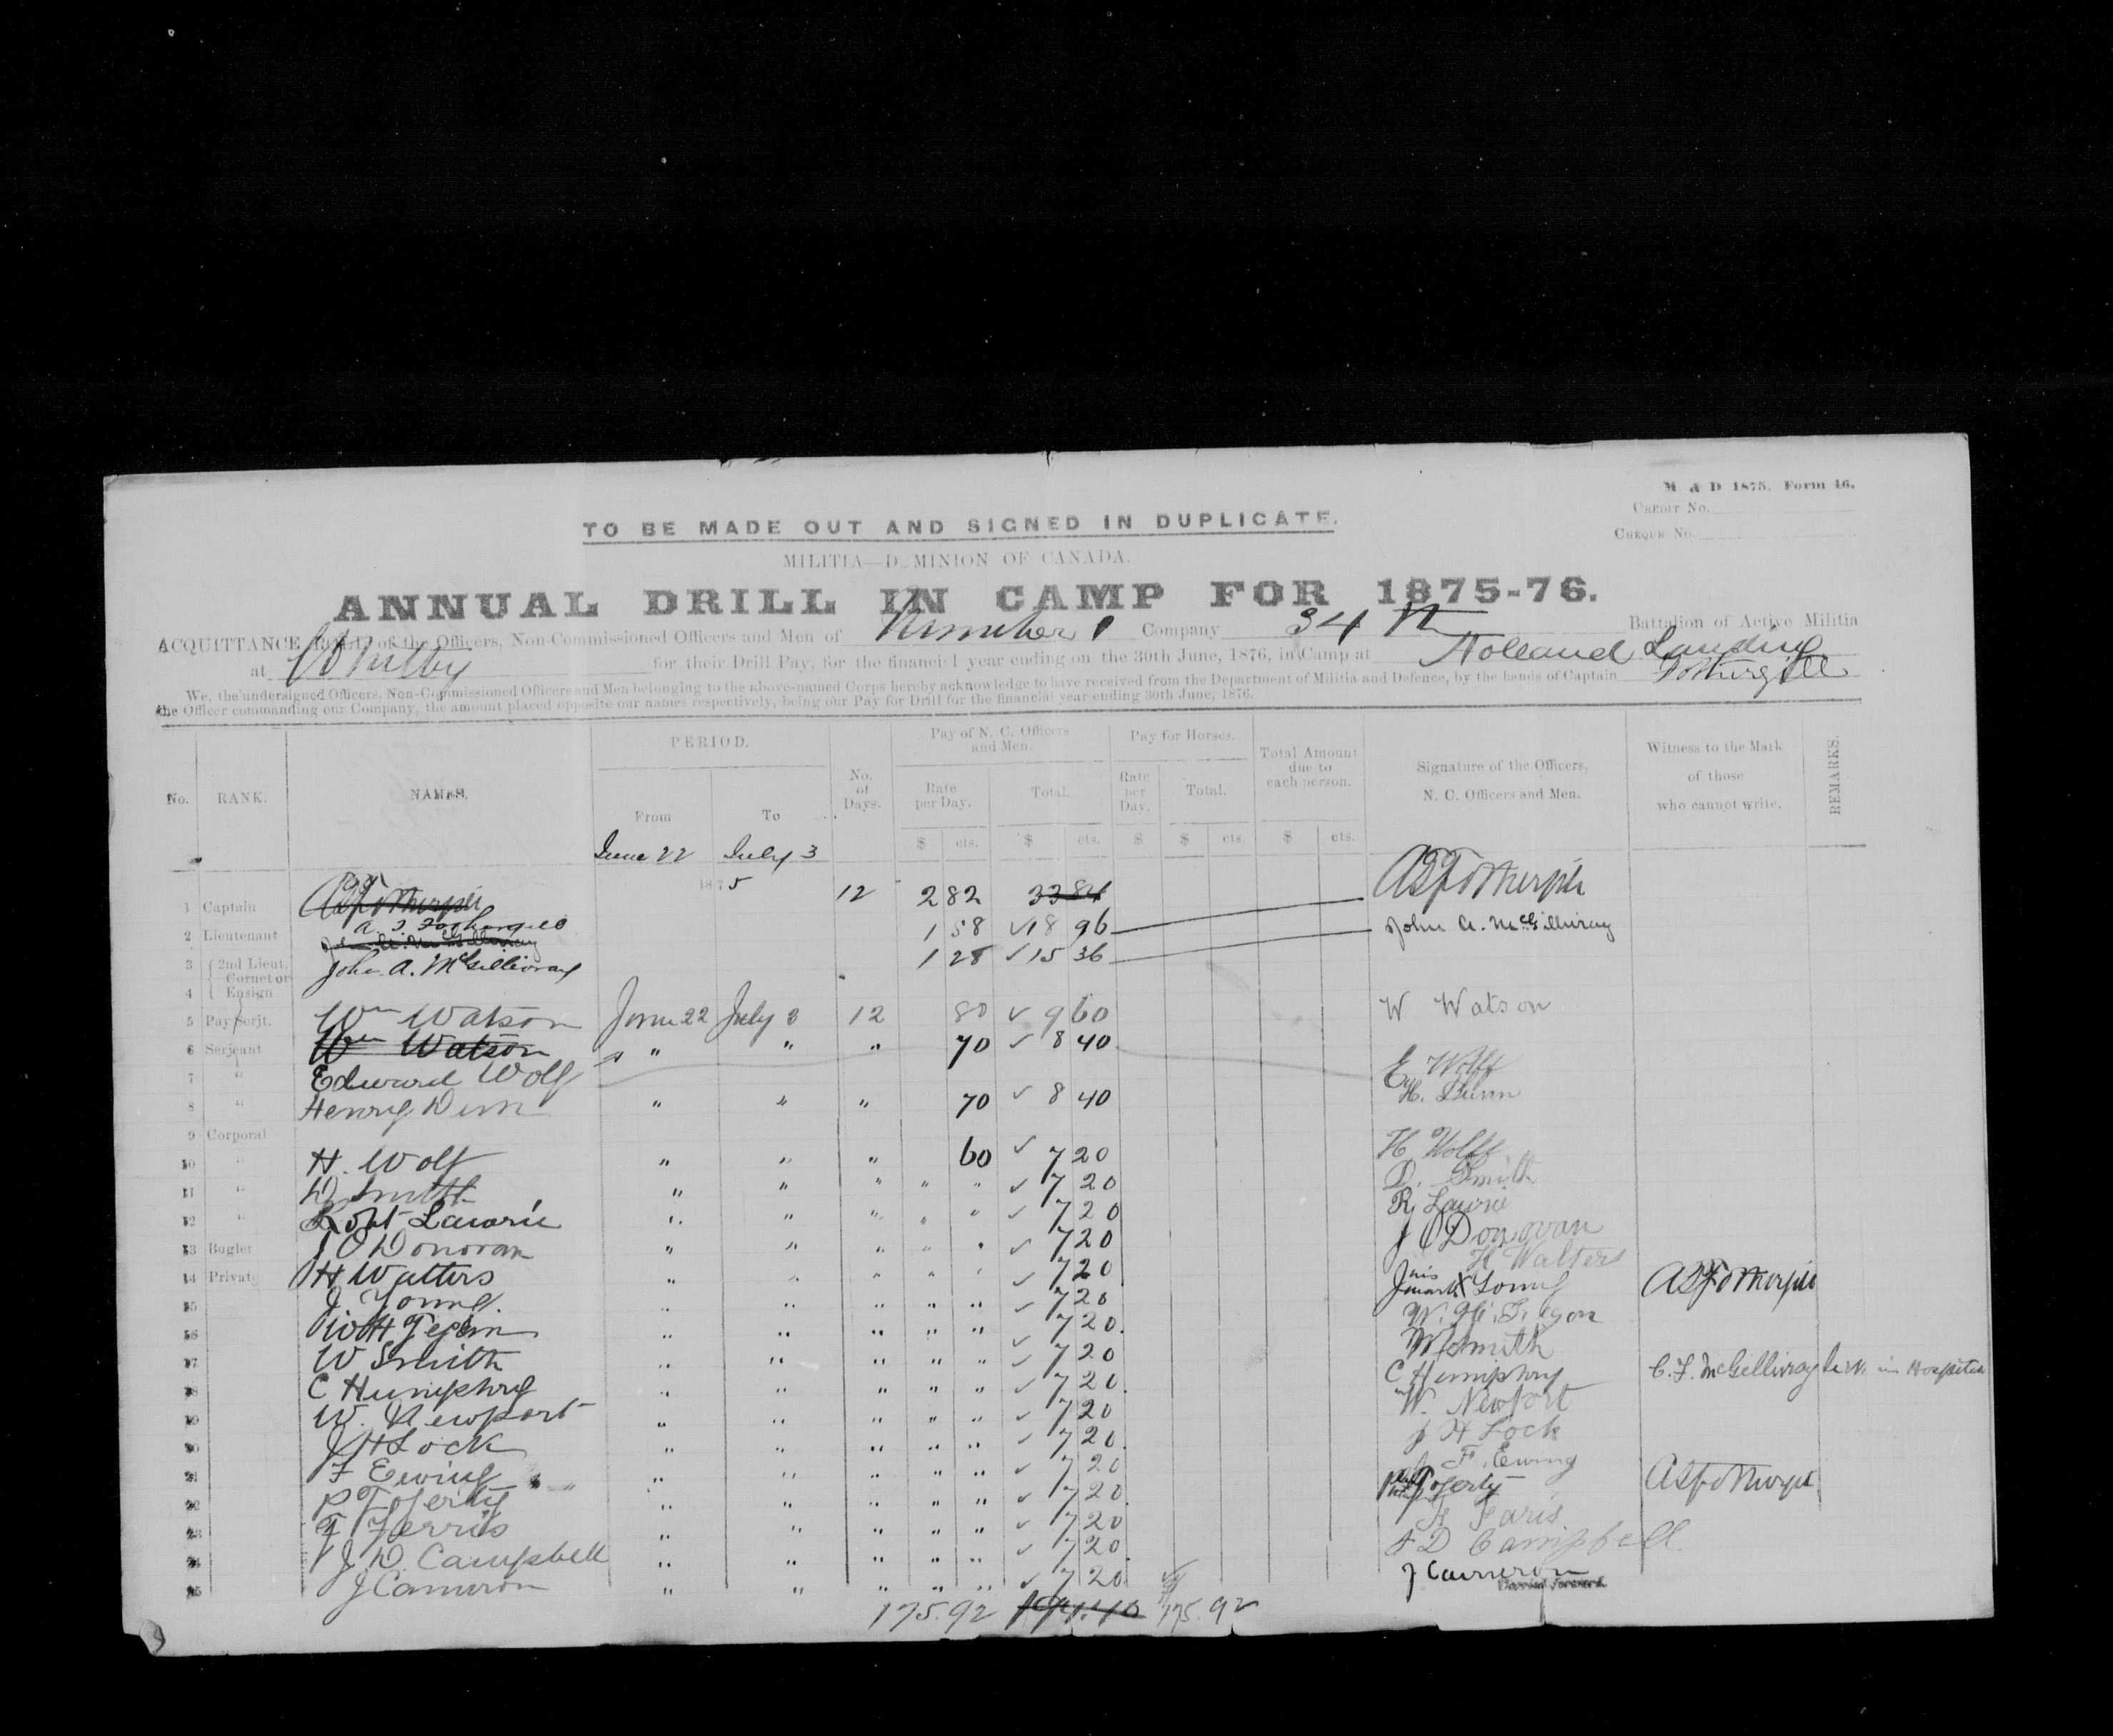 M & D 1875. Form 46.
CREDIT No.
CHEQUE No.
TO BE MADE OUT AND SIGNED IN DUPLICATE.
MILITIA—DOMINION OF CANADA.
ANNUAL DRILL IN CAMP FOR 1875-76.
ACQUITTANCE of the Officers, Non-Commissioned Officers and Men of Number 1 Company 34th Battalion of Active Militia
at Whitby for their Drill Pay, for the financial year ending on the 30th June, 1876, in Camp at Holland Landing
We, the undersigned Officers, Non-Commissioned Officers and Men belonging to the above-named Corps hereby acknowledge to have received from the Department of Militia and Defence, by the hands of Captain Fothergill
the Officer commanding our Company, the amount placed opposite our names respectively, being our Pay for Drill for the financial year ending 30th June, 1876.
No. RANK. NAMES. PERIOD. From To No. of Days. Pay of N. C. Officers and Men. Rate per Day. Total. Pay for Horses. Rate per Day. Total. Total Amount due to each person. Signature of the Officers, N. C. Officers and Men. Witness to the Mark of those who cannot write. REMARKS.
$ cts. $ cts. $ $ cts. $ cts.
June 22 July 3
1875
1 Captain 12 2 82 33 84
2 Lieutenant 1 58 ✓ 18 96 John A. McGillivray
3 2nd Lieut. Cornet or John A. McGillivray 1 28 ✓ 15 36
4 Ensign
5 Pay Serjt. Wm Watson June 22 July 3 12 80 ✓ 9 60 W Watson
6 Serjeant Wm Watson " " " 70 ✓ 8 40
7 " Edward Wolf E Wolff
8 " Henry Dunn " " " 70 ✓ 8 40 H. Dunn
9 Corporal
10 " H. Wolf " " " 60 ✓ 7 20 H Wolff
11 " D Smith " " " " " ✓ 7 20 D. Smith
12 " Robt Lawrie " " " " " ✓ 7 20 R Lawrie
13 Bugler J O Donovan " " " " " ✓ 7 20 J O Donovan
14 Private H Walters " " " " " ✓ 7 20 H Walters
15 J. Young. " " " " " ✓ 7 20 J his mark X Young
16 " " " " " 7 20.
17 W Smith " " " " " ✓ 7 20 W Smith
18 C Humphry " " " " " ✓ 7 20. C Humphry C. F. McGillivray in Hospital
19 W. Newport " " " " " ✓ 7 20 W. Newport
20 J H Lock " " " " " ✓ 7 20. J H Lock
21 F Ewing " " " " " ✓ 7 20 F. Ewing
22 P Fogerty " " " " " ✓ 7 20. P Fogerty
23 F Ferris " " " " " ✓ 7 20 F Faris
24 J D. Campbell " " " " " ✓ 7 20. J D Campbell
25 J Cameron " " " " " ✓ 7 20 J Cameron
Carried forward
175.92 194.40 175.92